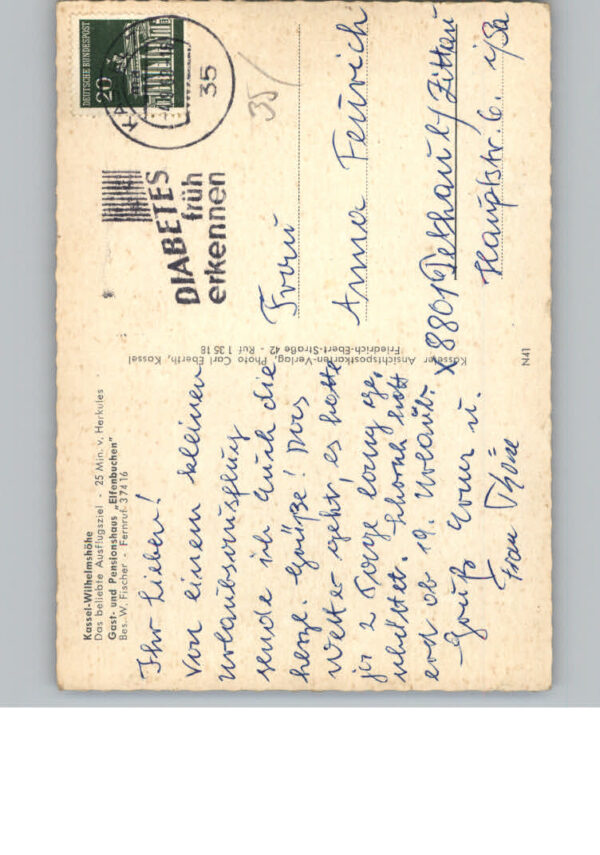 Kassel-Wilhelmshöhe
Das beliebte Ausflugsziel - 25 Min. v. Herkules
Gast- und Pensionshaus „Elfenbuchen"
Bes. W. Fischer - Fernruf 37416
Ihr Lieben!
Von einem kleinen
Urlaubsausflug
sende ich Euch die
herzl. Grüße! Das
Wetter geht, es hatte
ja 2 Tage lang ge-
schüttet. hat
erst ab 19. Urlaub.
Gruß Erna u.
Frau
Kasseler Ansichtspostkarten-Verlag, Photo Carl Eberth, Kassel
Friedrich-Ebert-Straße 42 - Ruf 1 35 18
N41
DEUTSCHE BUNDESPOST
20
35
35/
DIABETES
früh
erkennen
Frau
Anna Feurich
X8801 /Zittau
Hauptstr. 6.